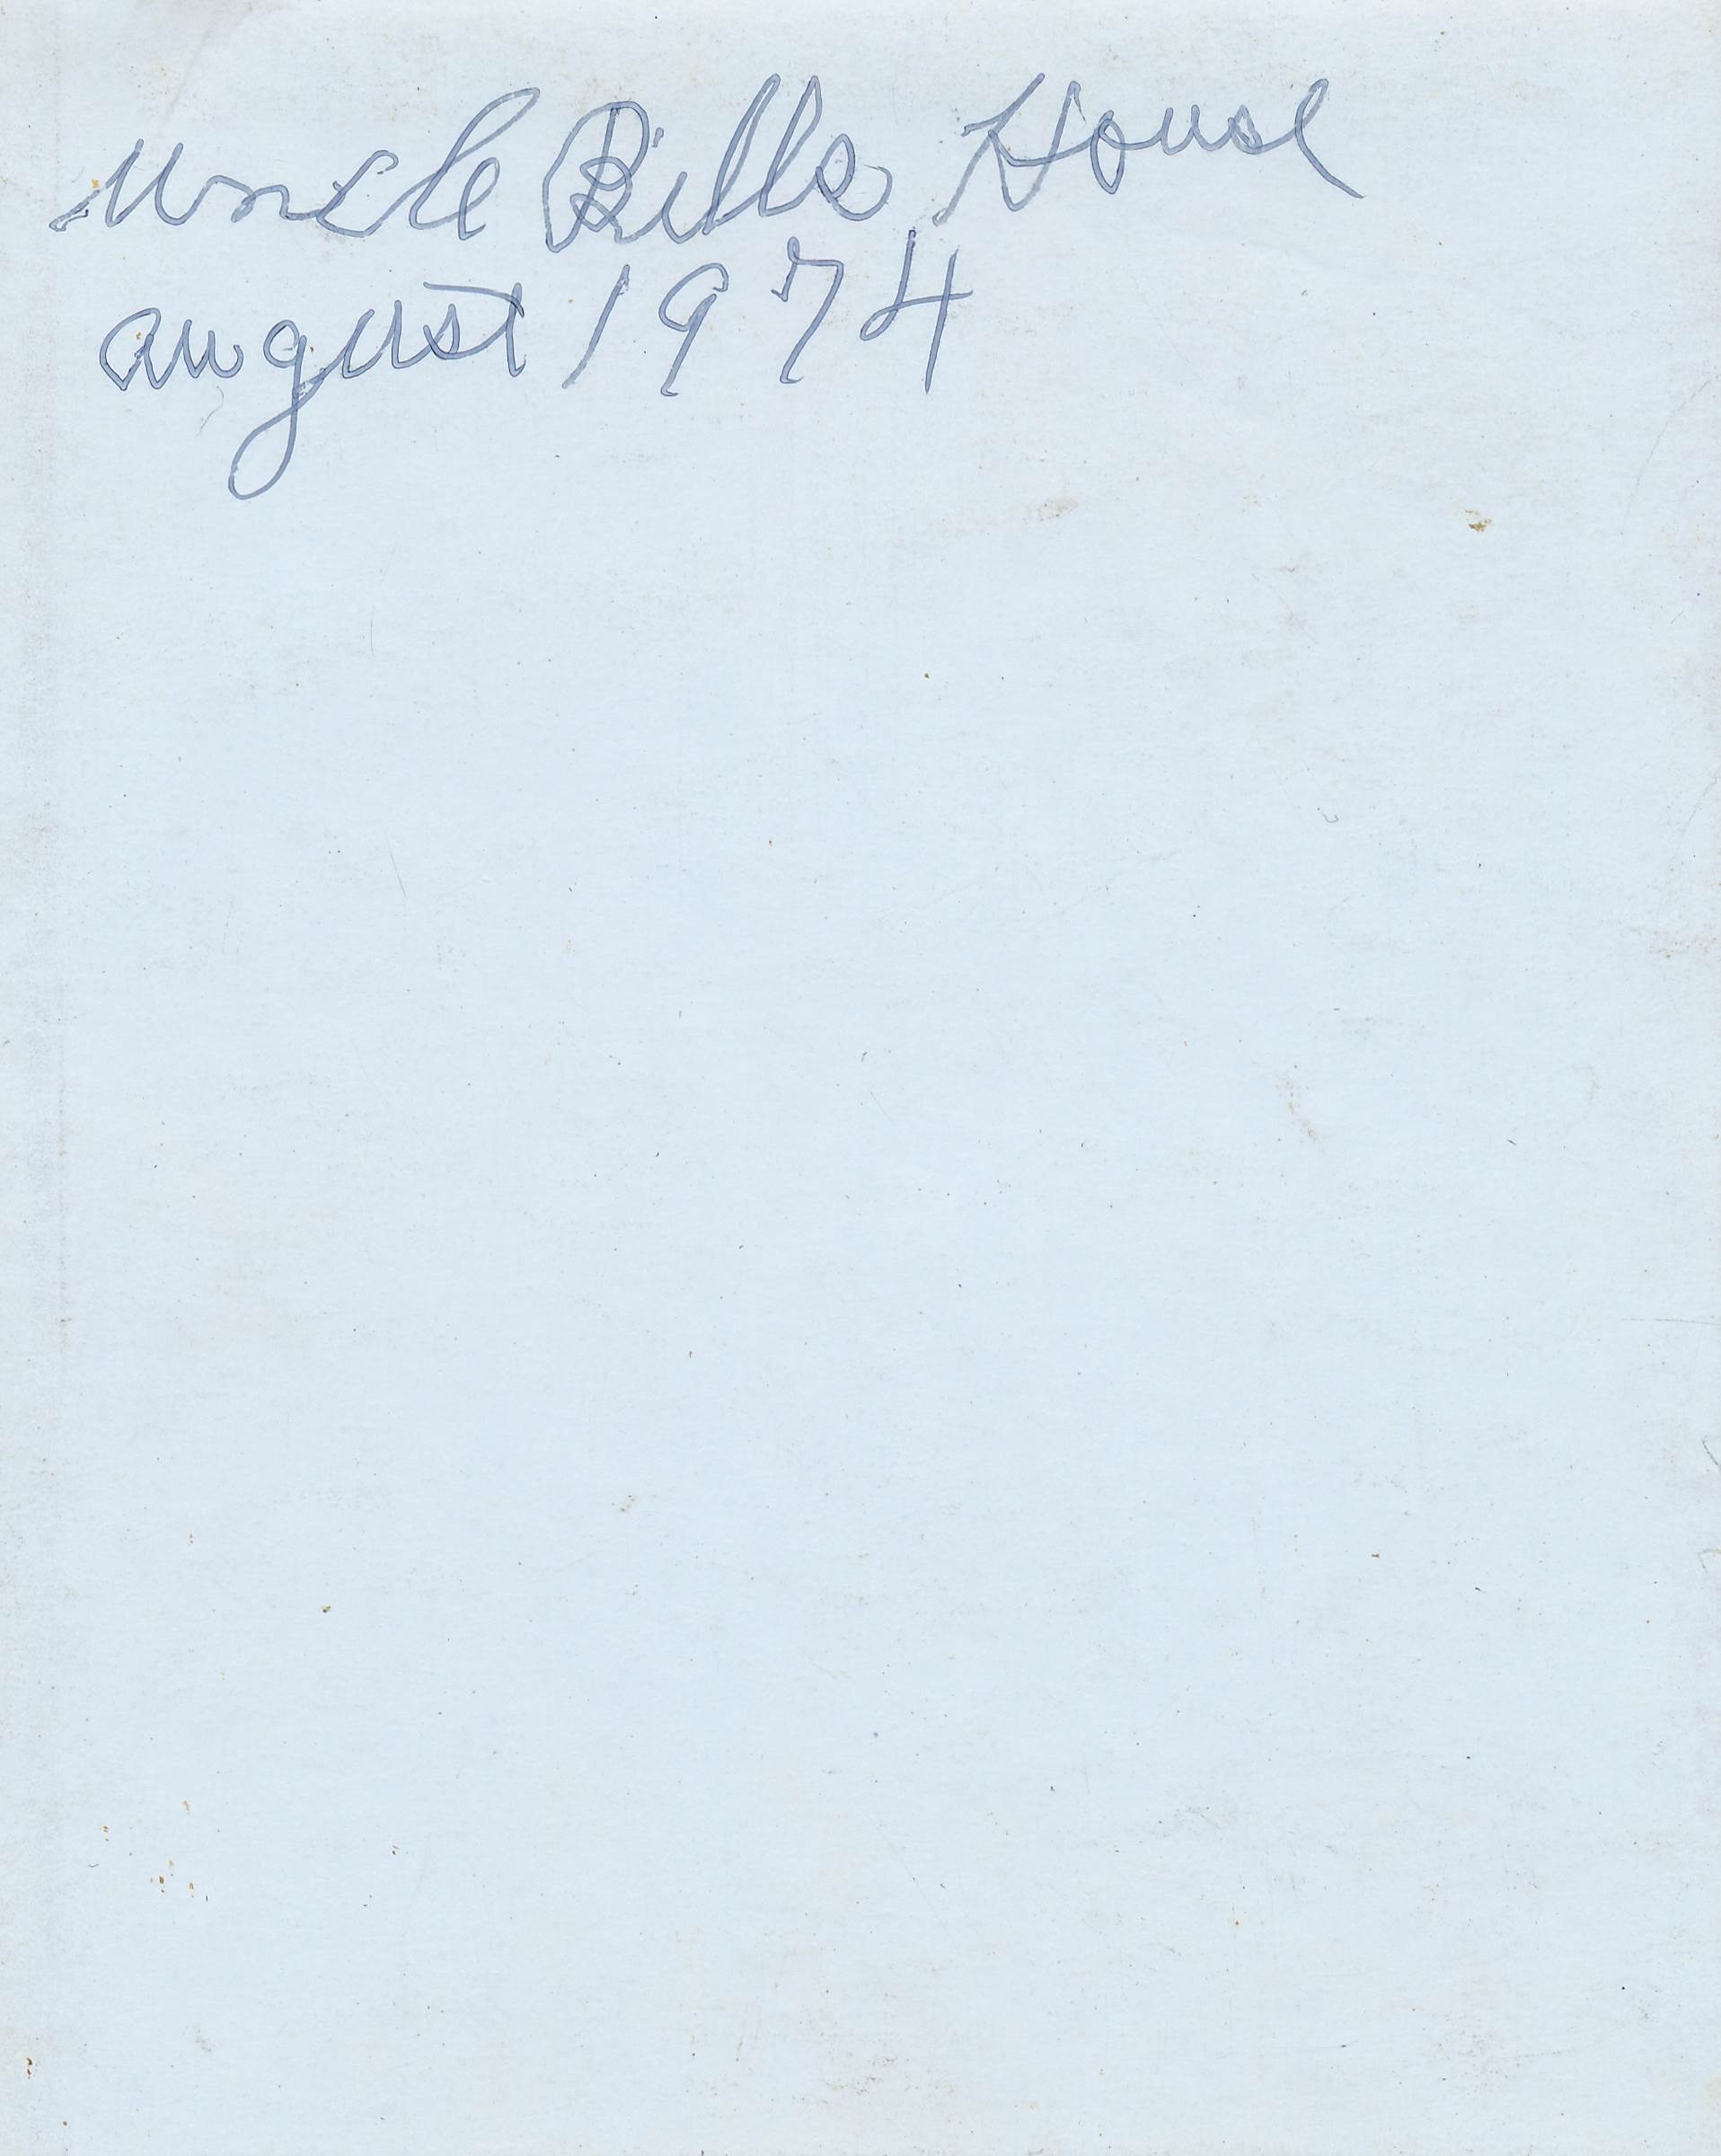 Uncle Bills House
august 1974